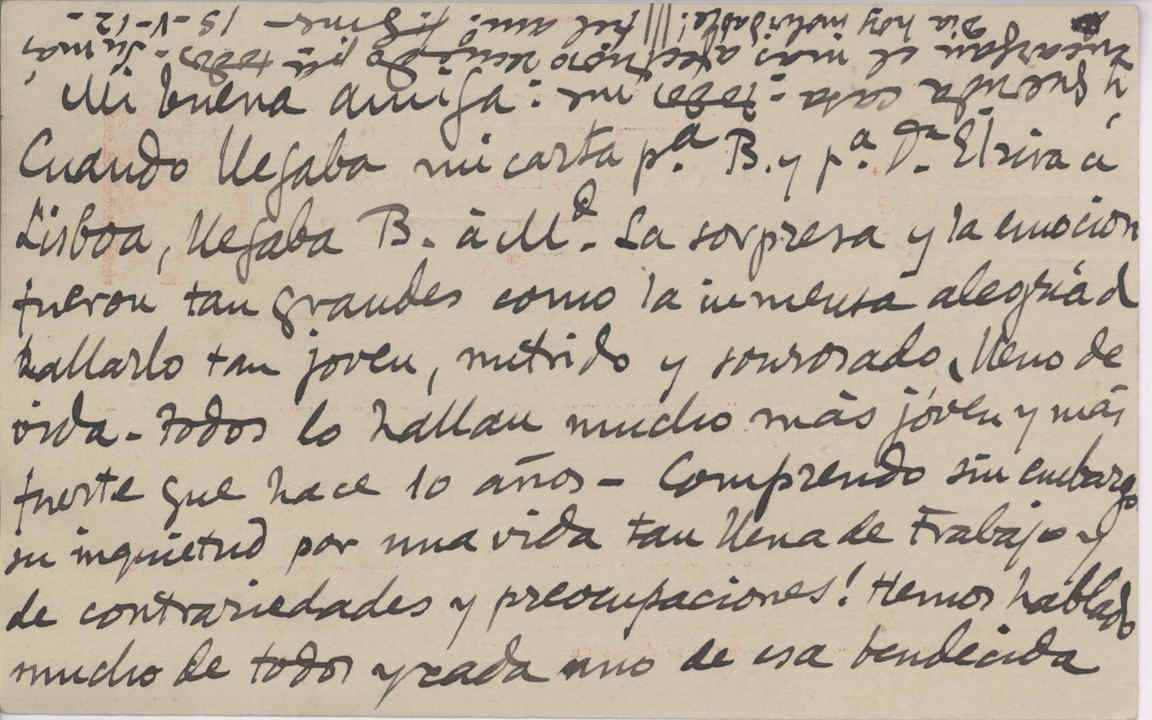 Mi buena amiga:
Cuando llegaba mi carta p.ª B. y p.ª Dª Elzira á
Lisboa, llegaba B. á Md. La sorpresa y la emoción
fueron tan grandes como la inmensa alegría d
hallarlo tan joven, nutrido y sonrosado, lleno de
vida - todos lo hallan mucho más jóven y más
fuerte que hace 10 años - Comprendo sin embargo
su inquietud por una vida tan llena de trabajo y
de contrariedades y preocupaciones! Hemos hablado
mucho de todos y cada uno de esa bendecida
y querida casa - todos mi
encargan el más afectuoso recuerdo pª todos - Su más
fiel am.º
Dia hoy inolvidable!
15-V-12-